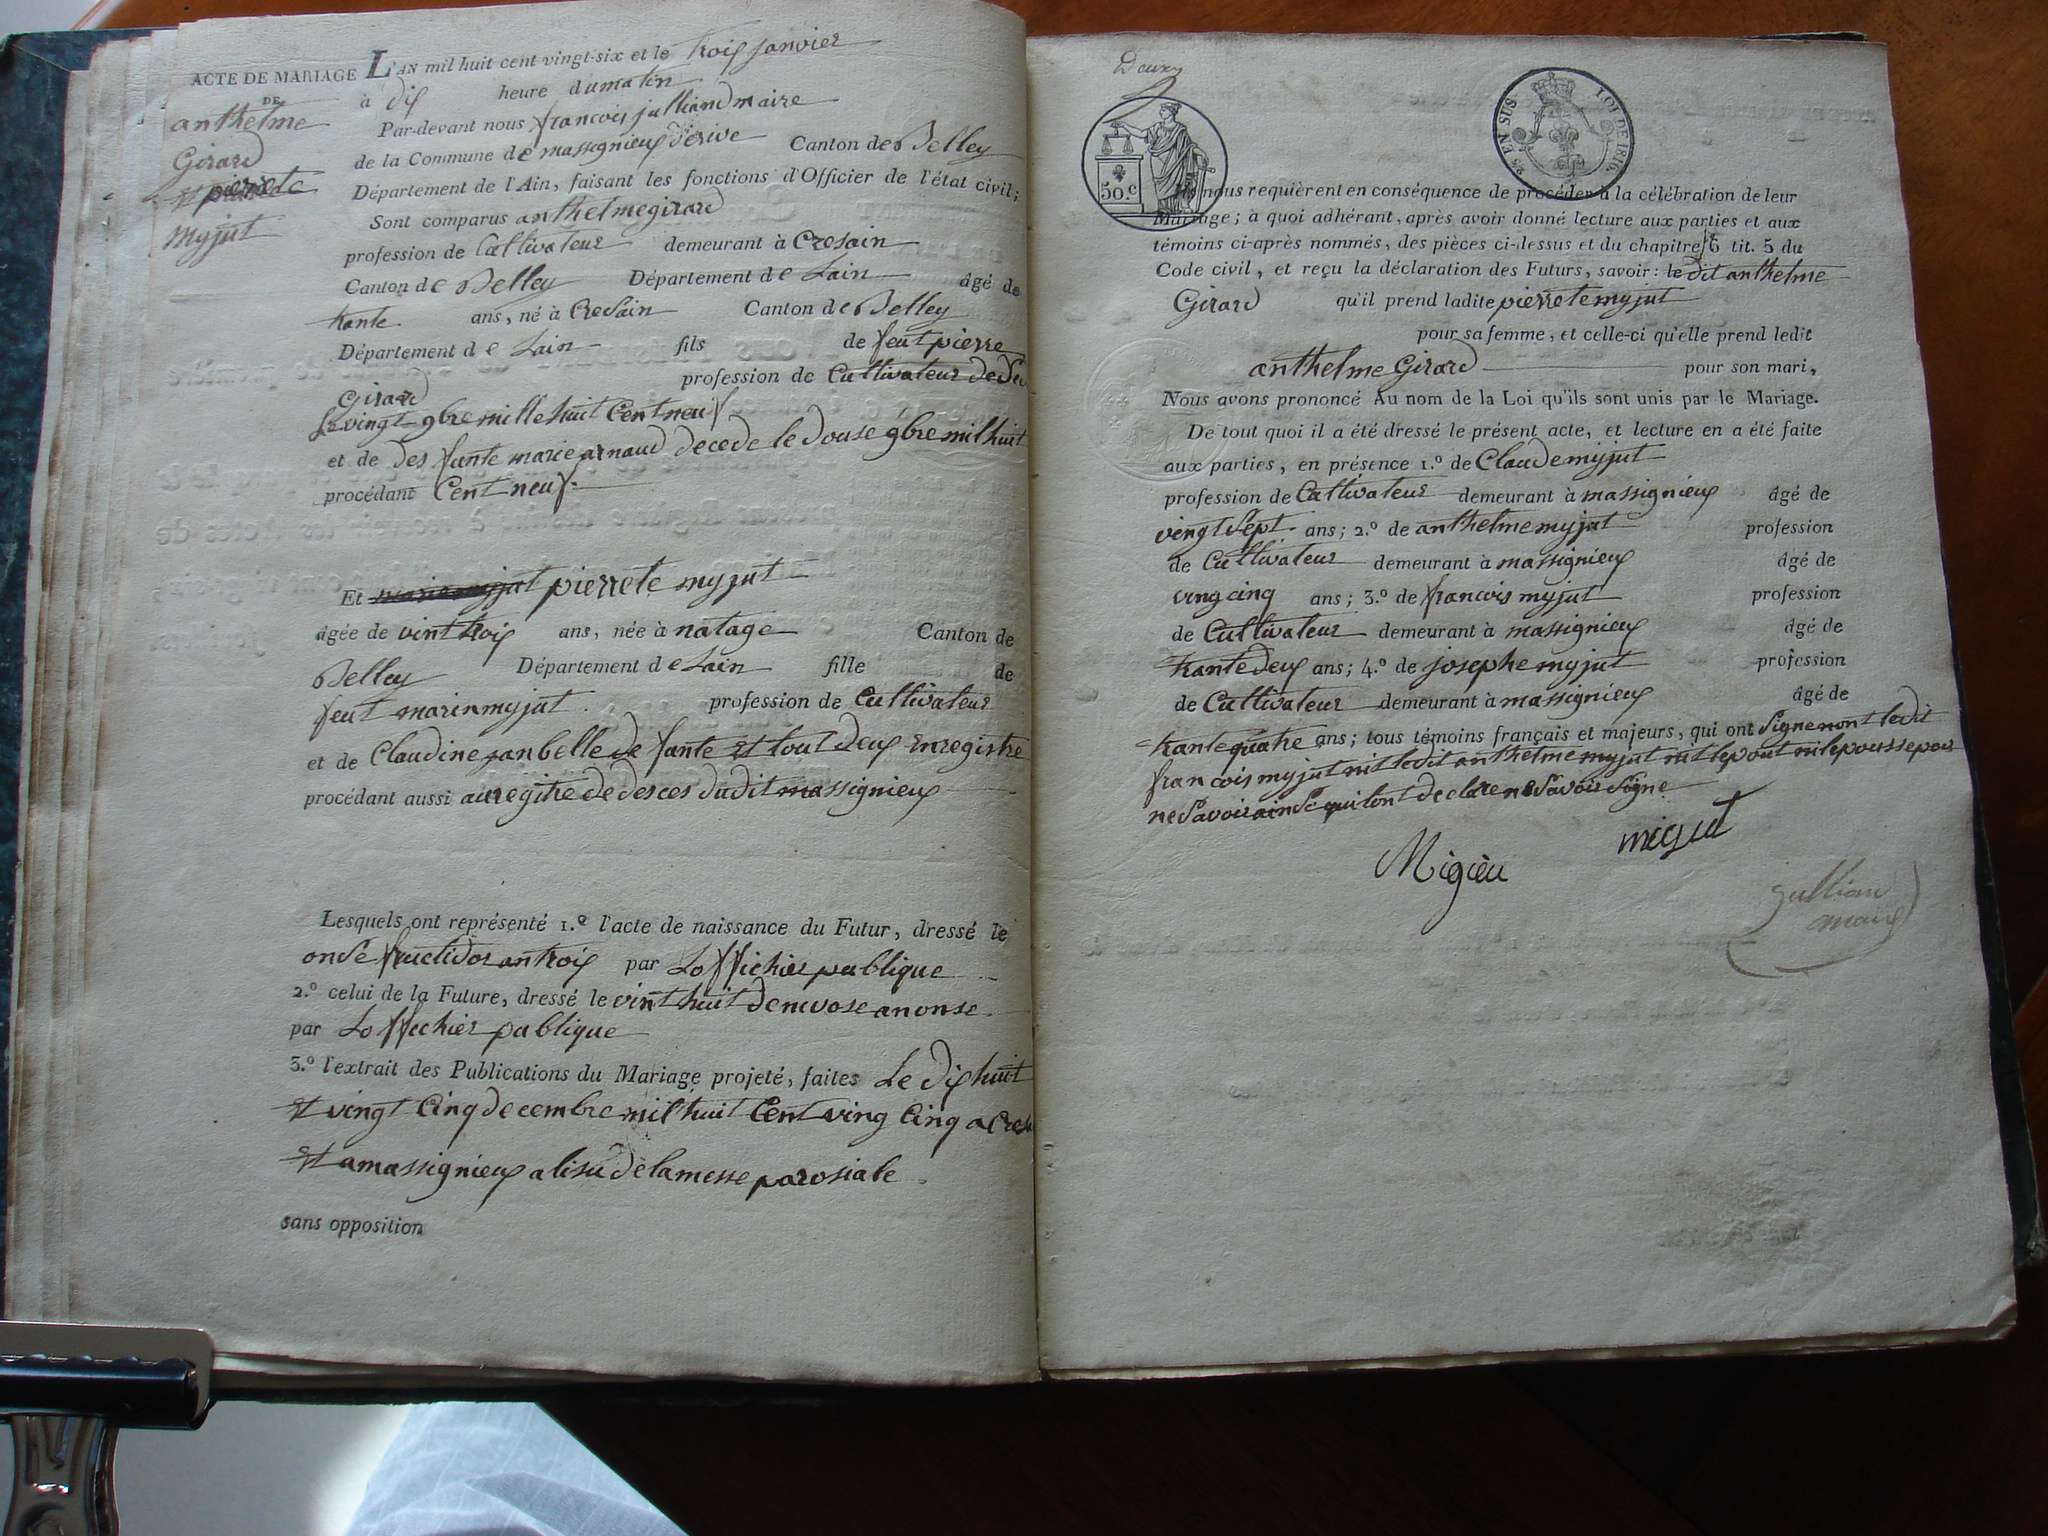 ACTE DE MARIAGE
DE
anthelme
Girard
et pierrete
myjut
L'AN mil huit cent vingt-six et le trois janvier
à dix heure du matin
Par-devant nous francois julliand maire
de la Commune de massignieux derive Canton de Belley
Département de l'Ain, faisant les fonctions d'Officier de l'état civil;
Sont comparus anthelme girard
profession de Cultivateur demeurant à Cresain
Canton de Belley Département de Lain âgé de
trante ans, né à Cresain Canton de Belley
Département de Lain fils de feut pierre
Girard profession de Cultivateur de de
le vingt 9bre mille huit Cent neuf
et de des fante marie arnaud decede le douse 9bre mil huit
procédant Cent neuf.
Et marie myjut pierrete myjut
âgée de vint trois ans, née à natage Canton de
Belley Département de Lain fille de
feut marin myjut profession de Cultivateur
et de Claudine janbelle de fante et tout deux enregistre
procédant aussi au regitre de desces dudit massignieux
Lesquels ont représenté 1.º l'acte de naissance du Futur, dressé le
onse fructidor an trois par Loffichier publique
2.º celui de la Future, dressé le vint huit de nivose an onse
par Loffichier publique
3.º l'extrait des Publications du Mariage projeté, faites Le dix huit
et vingt Cinq decembre mil huit Cent ving Cinq a Cres
et a massignieux a lisu de la messe parosiale
sans opposition
Deux
50.c
EN SUS LOI DE 1816
nous requièrent en conséquence de procéder à la célébration de leur
Mariage; à quoi adhérant, après avoir donné lecture aux parties et aux
témoins ci-après nommés, des pièces ci-dessus et du chapitre 6 tit. 5 du
Code civil, et reçu la déclaration des Futurs, savoir: le dit anthelme
Girard qu'il prend ladite pierrete myjut
pour sa femme, et celle-ci qu'elle prend ledit
anthelme Girard pour son mari,
Nous avons prononcé Au nom de la Loi qu'ils sont unis par le Mariage.
De tout quoi il a été dressé le présent acte, et lecture en a été faite
aux parties, en présence 1.º de Claude myjut
profession de Cultivateur demeurant à massignieux âgé de
vingt sept ans; 2.º de anthelme myjut profession
de Cultivateur demeurant à massignieux âgé de
ving cinq ans; 3.º de francois myjut profession
de Cultivateur demeurant à massignieux âgé de
trante deux ans; 4.º de josephe myjut profession
de Cultivateur demeurant à massignieux âgé de
trante quatre ans; tous témoins français et majeurs, qui ont signe non ledit
francois myjut nit ledit anthelme myjut nit lepout ni lepousse pour
ne savoir ainse quilont declare ne savoir signe
Migieu
migut
jullian
maire